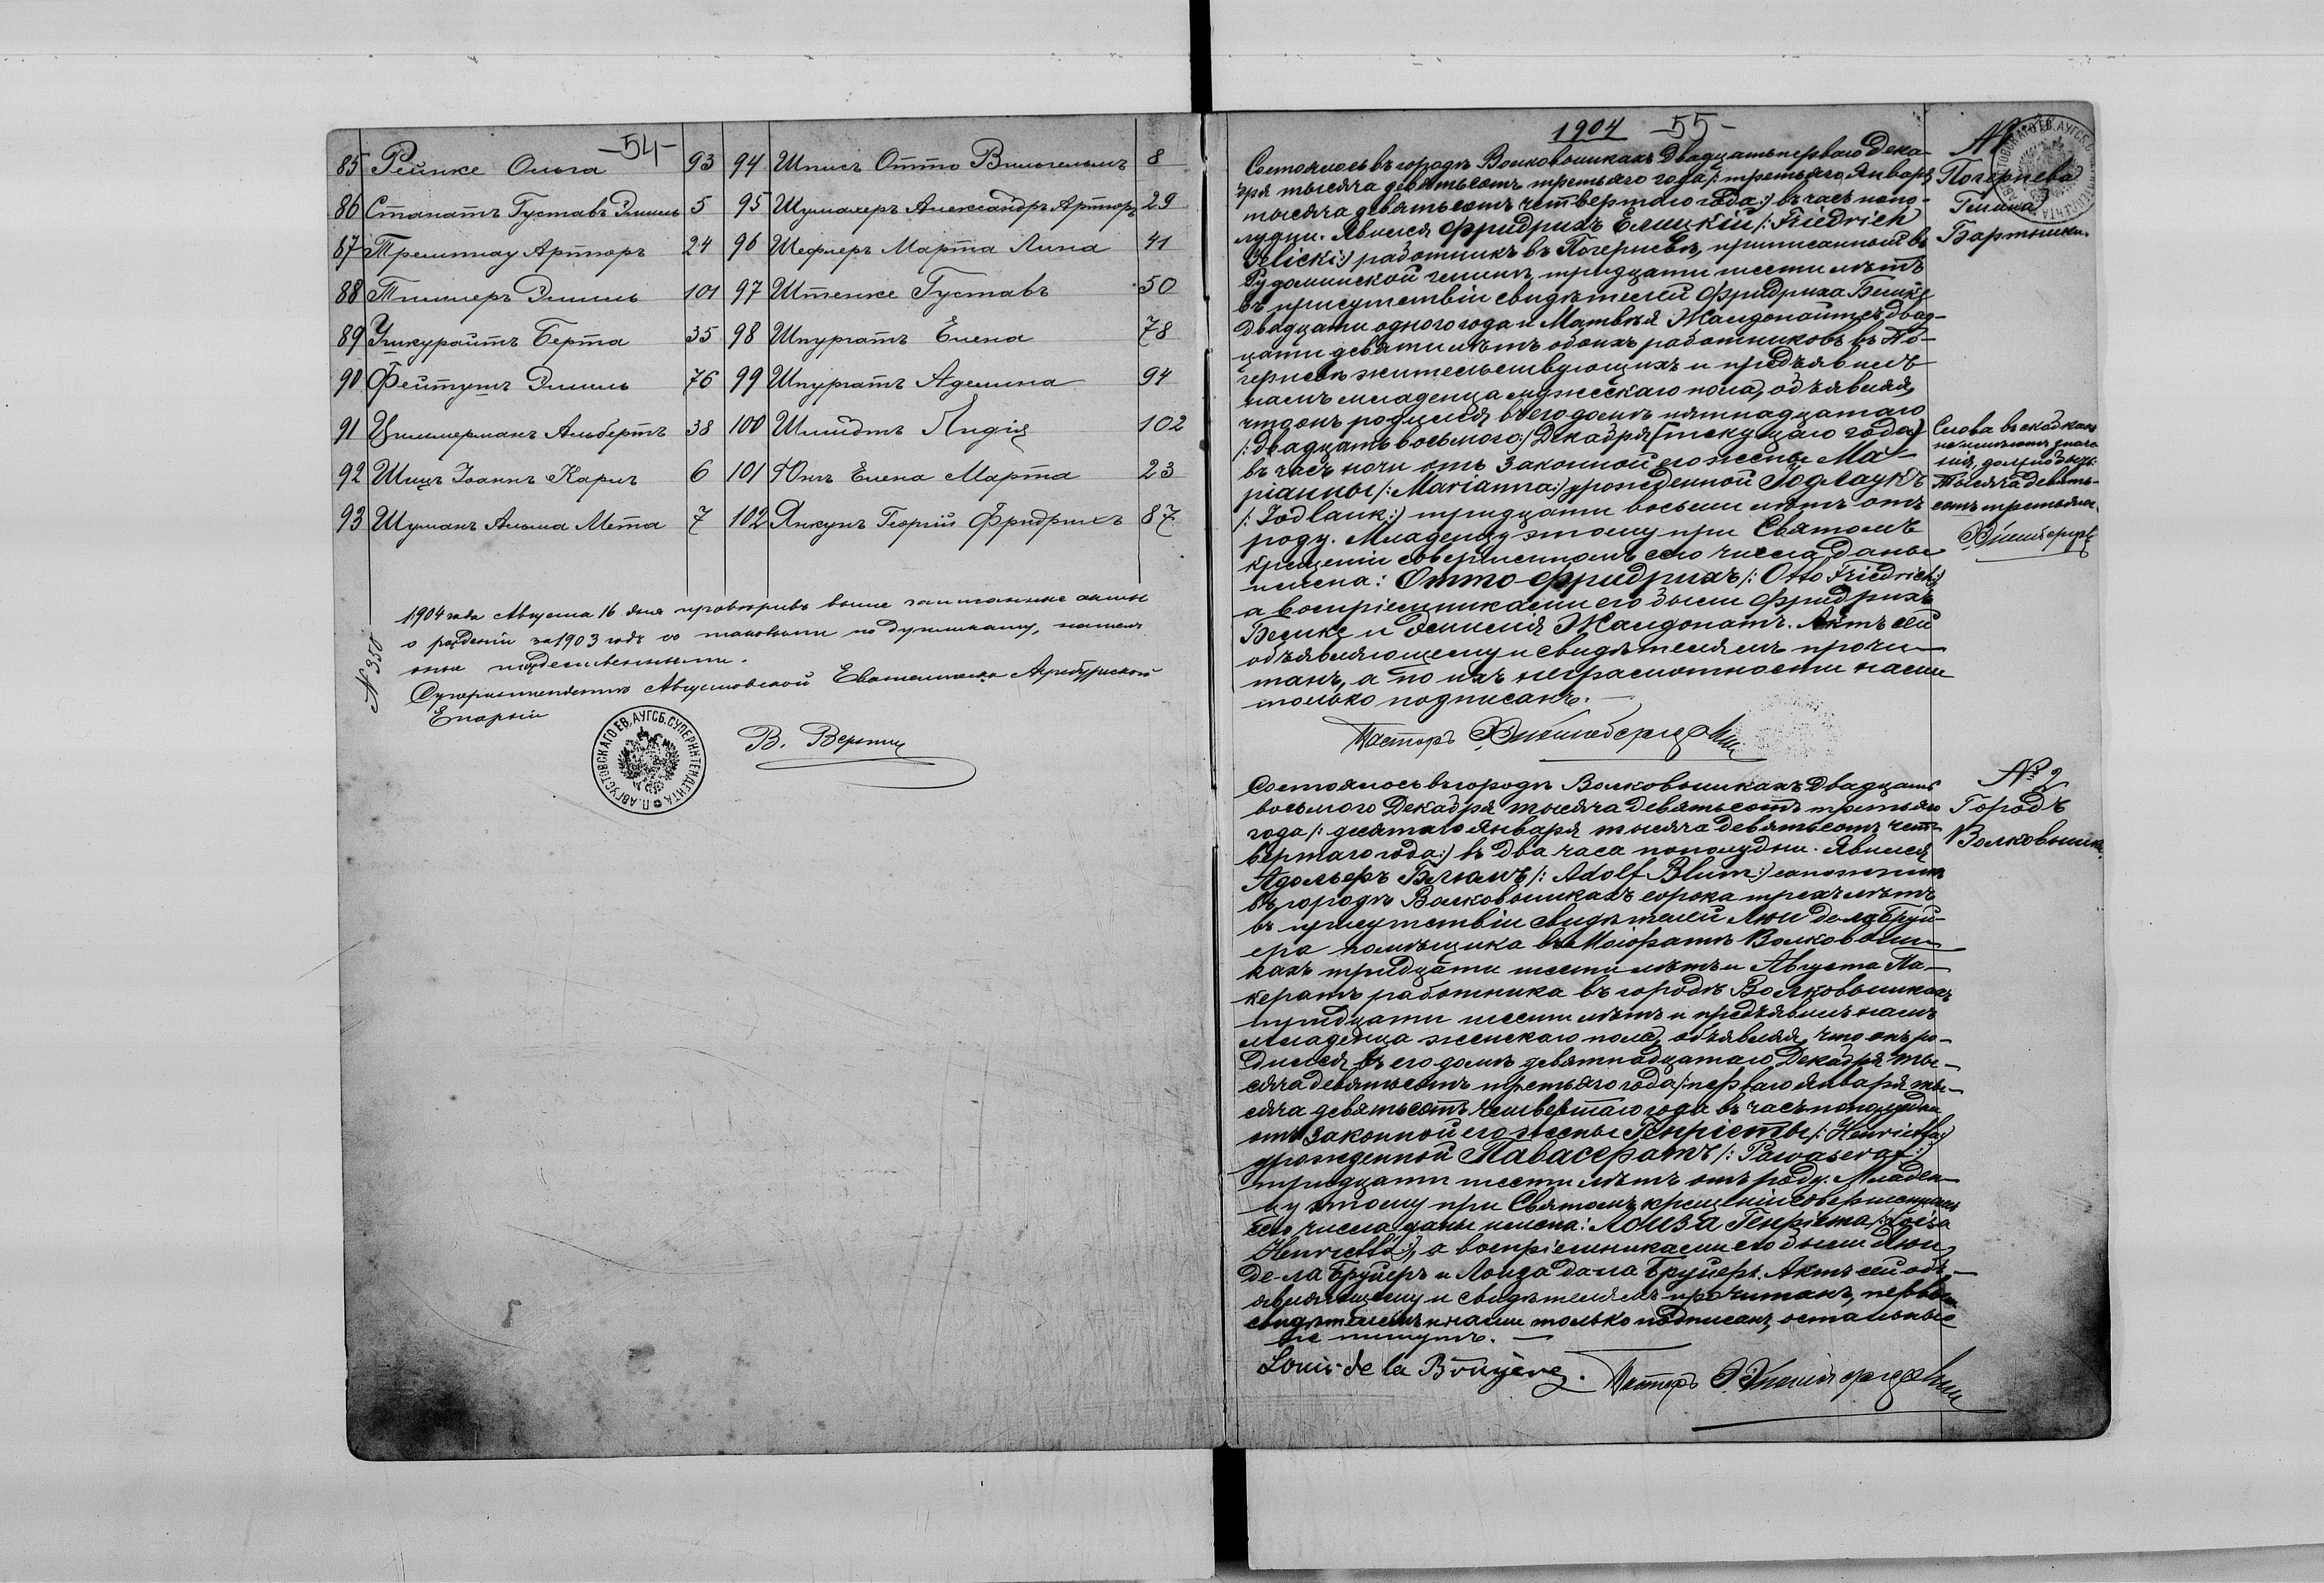 -54-
85 Рейнке Ольга 93
86 Станатъ Густавъ Эмиль 5
87 Тремпнау Артуръ 24
88 Тиммеръ Эмиль 101
89 Ушкурайтъ Берта 35
90 Фейтутъ Эмиль 76
91 Циммерманъ Альбертъ 38
92 Шицъ Іоаннъ Карлъ 6
93 Шуманъ Альма Мета 7
94 Шписъ Отто Вильгельмъ 8
95 Шумахеръ Александръ Артуръ 29
96 Шефлеръ Марта Лина 41
97 Штенке Густавъ 50
98 Шпургатъ Елена 78
99 Шпургатъ Аделина 94
100 Шмидтъ Лидія 102
101 Юнъ Елена Марта 23
102 Янкунъ Георгій Фридрихъ 87
№ 350
1904 года Августа 16 дня провѣривъ выше записанные акты
о рожденіи за 1903 годъ со таковыми по дупликату, нашелъ
оные тождественными.
Суперинтендентъ Августовской Евангелическо Аугсбургской
Епархіи
П. АВГУСТОВСКАГО ЕВ. АУГСБ. СУПЕРИНТЕНДЕНТА
В.
1904 -55-
Состоялось въ городѣ Волковышкахъ Двадцать перваго Дека-
бря тысяча девятьсотъ третьяго года /: третьяго Января
тысяча девятьсотъ четвертаго года:/ въ часъ попо-
лудни. Явился Фридрихъ Елицкій /: Friedrich
Jelicki:/ работникъ въ Погерневѣ, приписанный въ
Рудоминской гминѣ, тридцати шести лѣтъ
въ присутствіи свидѣтелей Фридриха
Двадцати одного года и Матвѣя двад-
цати девяти лѣтъ обоихъ работниковъ въ По-
герневѣ жительствующихъ и предъявилъ
намъ младенца мужескаго пола, объявляя,
что онъ родился въ его домѣ пятнадцатаго
/: двадцать восьмого:/ Декабря (текущаго года)
въ часъ ночи отъ законной его жены Ма-
ріанны /: Marianna:/ урожденной Іодлаукъ
/: Jodlauk:/ тридцати восьми лѣтъ отъ
роду. Младенцу этому при Святомъ
крещеніи совершенномъ сего числа даны
имена: Отто-Фридрихъ /: Otto Friedrich:/
а воспріемниками его были Фридрихъ
и Эмилія Жалдонатъ. Актъ сей
объявляющему и свидѣтелямъ прочи-
танъ, а по ихъ неграмотности нами
только подписанъ.
Пасторъ
№ 1
Погернева
Гмина
Бартники
Слова въ скобкахъ
не имѣютъ значе-
нія, должно быть:
Тысяча девять-
сотъ третьяго.
Состоялось въ городѣ Волковышкахъ Двадцать
восьмого Декабря тысяча девятьсотъ третьяго
года /: десятаго Января тысяча девятьсотъ чет-
вертаго года:/ въ два часа пополудни. Явился
Адольфъ Блюмъ /: Adolf Blum:/ сапожникъ
въ городѣ Волковышкахъ сорока трехъ лѣтъ
въ присутствіи свидѣтелей Луи де ла Бруй-
ера помѣщика въ Маіоратѣ Волковыш-
кахъ тридцати шести лѣтъ и Августа Па-
кератъ работника въ городѣ Волковышкахъ
тридцати шести лѣтъ и предъявилъ намъ
младенца женскаго пола, объявляя, что онъ ро-
дился въ его домѣ девятнадцатаго Декабря ты-
сяча девятьсотъ третьяго года /: перваго января ты-
сяча девятьсотъ четвертаго года въ часъ пополудни
отъ законной его жены Генріеты /: Henrietta:/
урожденной Павасератъ /: Pawaserat:/
тридцати шести лѣтъ отъ роду. Младен-
цу этому при Святомъ крещеніи совершенномъ
сего числа даны имена: Лоиза Генріета /: Loisa
Henrietta:/, а воспріемниками его были Луи
де-ла Бруйеръ и Лоиза де ла Бруйеръ. Актъ сей объ-
являющему и свидѣтелямъ прочитанъ, первымъ
свидѣтелемъ и нами только подписанъ, остальные
не пишутъ.
Louis de la Bruyère. Пасторъ
№ 2
Городъ
Волковышки